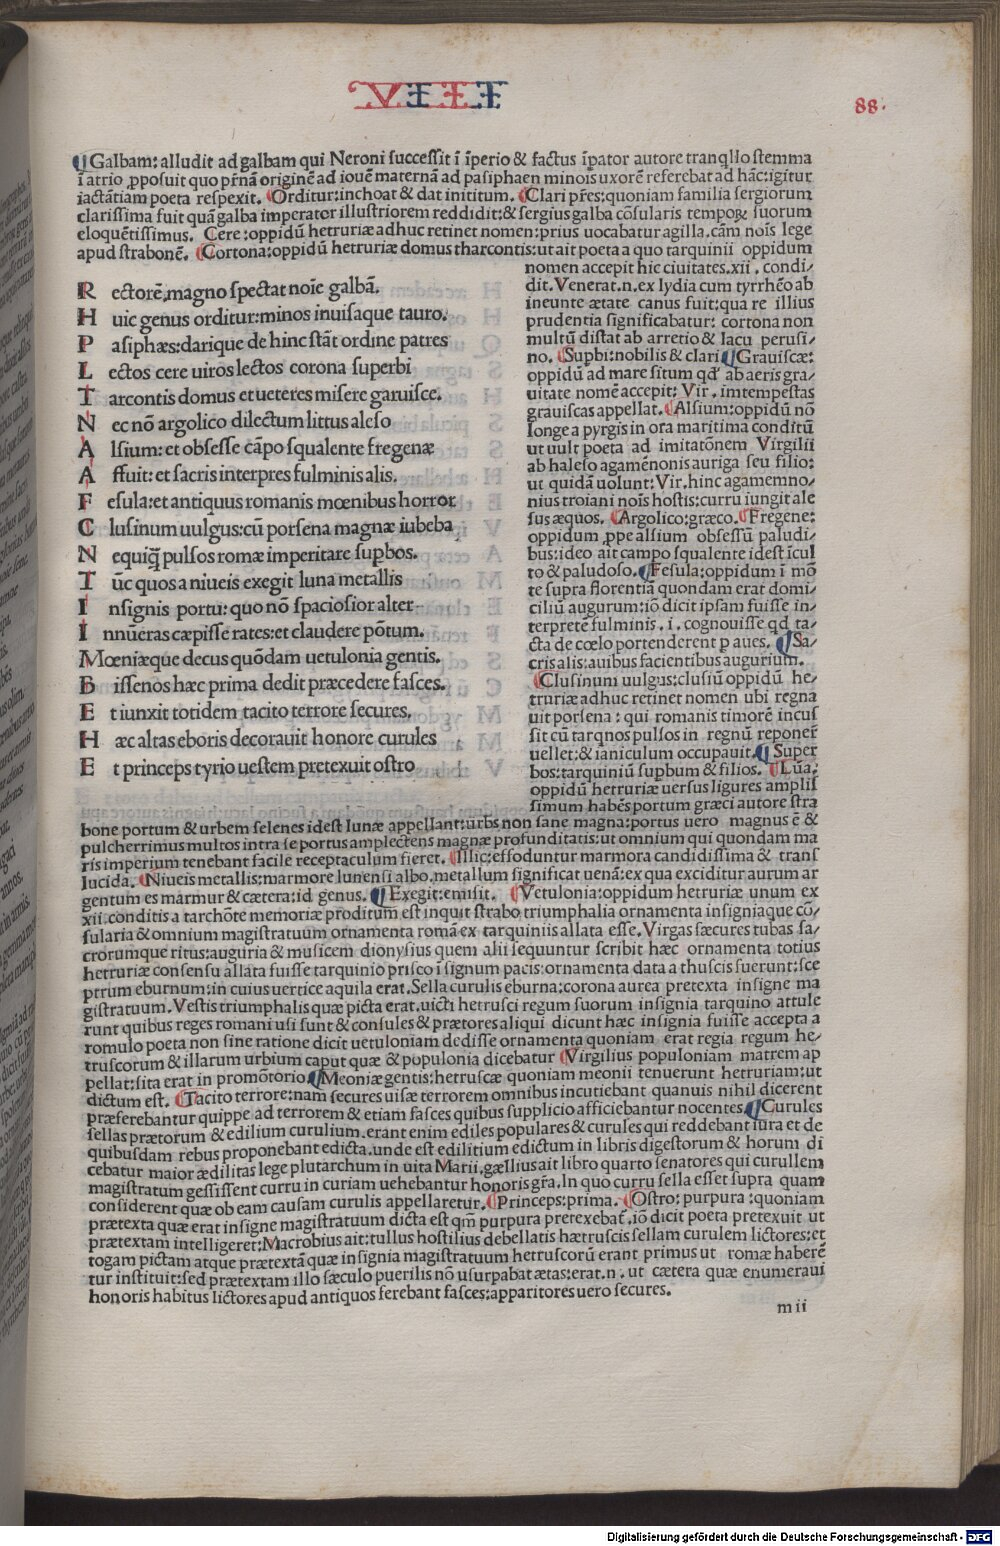 VIII
88.
Galbam: alludit ad galbam qui Neroni successit ĩ ĩperio & factus ĩpator autore tranqllo stemma
ĩ atrio ꝓposuit quo pr̃nã originẽ ad iouẽ maternã ad pasiphaen minois uxorẽ referebat ad hãc: igitur
iactãtiam poeta respexit. Orditur: inchoat & dat inititum. Clari pr̃es: quoniam familia sergiorum
clarissima fuit quã galba imperator illustriorem reddidit: & sergius galba cõsularis tempoꝝ suorum
eloquẽtissimus. Cere: oppidũ hetruriæ adhuc retinet nomen: prius uocabatur agilla. cãm nois lege
apud strabonẽ. Cortona: oppidũ hetruriæ domus tharcontis: ut ait poeta a quo tarquinii oppidum
R ectorẽ, magno spectat noĩe galbã.
H uic genus orditur: minos inuisaque tauro.
P asiphæs: darique de hinc stãt ordine patres
L ectos cere uiros lectos corona superbi
T arcontis domus et ueteres misere garuisce.
N ec nõ argolico dilectum littus aleso
A lsium: et obsesse cãpo squalente fregenæ
A ffuit: et sacris interpres fulminis alis.
F esula: et antiquus romanis mœnibus horror
C lusinum uulgus: cũ porsena magnæ iubeba
N equiq̃ pulsos romæ imperitare supbos.
T ũc quos a niueis exegit luna metallis
I nsignis portu: quo nõ spaciosior alter
I nnũeras cæpisse rates: et claudere põtum.
Mœniæque decus quõdam uetulonia gentis.
B issenos hæc prima dedit præcedere fasces.
E t iunxit totidem tacito terrore secures.
H æc altas eboris decorauit honore curules
E t princeps tyrio uestem pretexuit ostro
nomen accepit hic ciuitates. xii. condi/
dit. Venerat. n. ex lydia cum tyrrhẽo ab
ineunte ætate canus fuit: qua re illius
prudentia significabatur: cortona non
multũ distat ab arretio & lacu perusi/
no. Supbi: nobilis & clari Grauiscæ:
oppidũ ad mare situm qd' ab aeris gra/
uitate nomẽ accepit: Vir. imtempestas
grauiscas appellat. Alsium: oppidũ nõ
longe a pyrgis in ora maritima conditũ
ut uult poeta ad imitatõnem Virgilii
ab haleso agamẽnonis auriga seu filio:
ut quidã uolunt: Vir. hinc agamemno/
nius troiani nois hostis: curru iungit ale
sus æquos. Argolico: græco. Fregene:
oppidum ꝓpe alsium obsessũ paludi/
bus: ideo ait campo squalente idest ĩcul
to & paludoso. Fesula: oppidum ĩ mõ
te supra florentiã quondam erat domi/
ciliũ augurum: iõ dicit ipsam fuisse in/
terpretẽ fulminis. i. cognouisse qd ta/
cta de cœlo portenderent p aues. Sa/
cris alis: auibus facientibus augurium.
Clusinuni uulgus: clusiũ oppidũ he/
truriæ adhuc retinet nomen ubi regna
uit porsena: qui romanis timorẽ incus
sit cũ tarqnos pulsos in regnũ reponer
uellet: & ianiculum occupauit. Super
bos: tarquiniũ supbum & filios. Lũa:
oppidũ hetruriæ uersus ligures amplis
simum habẽs portum græci autore stra
bone portum & urbem selenes idest lunæ appellant: urbs non sane magna: portus uero magnus ẽ &
pulcherrimus multos intra se portus amplectens magnæ profunditatis: ut omnium qui quondam ma
ris imperium tenebant facile receptaculum fieret. Illic: effoduntur marmora candidissima & trans
lucida. Niueis metallis: marmore lunensi albo. metallum significat uenã: ex qua exciditur aurum ar
gentum es marmur & cætera: id genus. Exegit: emisit. Vetulonia: oppidum hetruriæ unum ex
xii. conditis a tarchõte memoriæ proditum est inquit strabo triumphalia ornamenta insigniaque cõ/
sularia & omnium magistratuum ornamenta romã ex tarquiniis allata esse. Virgas sæcures tubas sa/
crorumque ritus: auguria & musicem dionysius quem alii sequuntur scribit hæc ornamenta totius
hetruriæ consensu allata fuisse tarquinio prisco ĩ signum pacis: ornamenta data a thuscis fuerunt: sce
ptrum eburnum: in cuius uertice aquila erat. Sella curulis eburna: corona aurea pretexta insigne ma
gistratuum. Vestis triumphalis quæ picta erat. uicti hetrusci regum suorum insignia tarquino attule
runt quibus reges romani usi sunt & consules & prætores aliqui dicunt hæc insignia fuisse accepta a
romulo poeta non sine ratione dicit uetuloniam dedisse ornamenta quoniam erat regia regum he/
truscorum & illarum urbium caput quæ & populonia dicebatur Virgilius populoniam matrem ap
pellat: sita erat in promõtorio. Meoniæ gentis: hetruscæ quoniam meonii tenuerunt hetruriam: ut
dictum est. Tacito terrore: nam secures uisæ terrorem omnibus incutiebant quanuis nihil dicerent
præferebantur quippe ad terrorem & etiam fasces quibus supplicio afficiebantur nocentes. Curules
sellas prætorum & edilium curulium. erant enim ediles populares & curules qui reddebant iura et de
quibusdam rebus proponebant edicta. unde est edilitium edictum in libris digestorum & horum di
cebatur maior ædilitas lege plutarchum in uita Marii. gællius ait libro quarto senatores qui curullem
magistratum gessissent curru in curiam uehebantur honoris gr̃a. In quo curru sella esset supra quam
considerent quæ ob eam causam curulis appellaretur. Princeps: prima. Ostro: purpura: quoniam
prætexta quæ erat insigne magistratuum dicta est qm̃ purpura pretexebat̃. iõ dicit poeta pretexuit ut
prætextam intelligeret: Macrobius ait: tullus hostilius debellatis hætruscis sellam curulem lictores: et
togam pictam atque prætextã quæ insignia magistratuum hetruscorũ erant primus ut romæ haberẽ
tur instituit: sed prætextam illo sæculo puerilis nõ usurpabat ætas: erat. n. ut cætera quæ enumeraui
honoris habitus lictores apud antiquos ferebant fasces: apparitores uero secures.
m ii
Digitalisierung gefördert durch die Deutsche Forschungsgemeinschaft - DFG